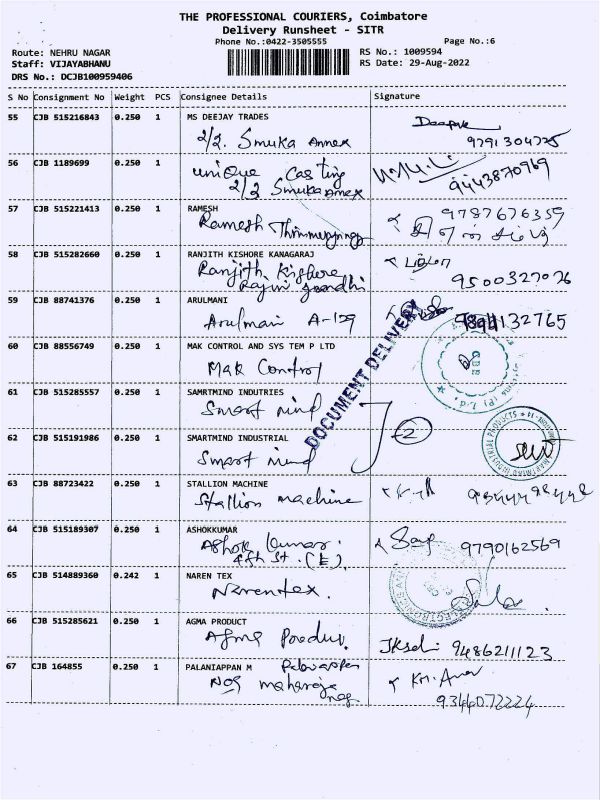 THE PROFESSIONAL COURIERS, Coimbatore
Delivery Runsheet - SITR
Phone No.:0422-3505555 Page No.:6
Route: NEHRU NAGAR RS No.: 1009594
Staff: VIJAYABHANU RS Date: 29-Aug-2022
DRS No.: DCJB100959406
S No Consignment No Weight PCS Consignee Details Signature
55 CJB 515216843 0.250 1 MS DEEJAY TRADES
2/2. Smuka Annex 9791304725
56 CJB 1189699 0.250 1 unique Casting
2/2 Smuka Annex 9443870969
57 CJB 515221413 0.250 1 RAMESH 9787676359
Ramesh
58 CJB 515282660 0.250 1 RANJITH KISHORE KANAGARAJ
Ranjith Kishore
Rajiv Gandhi 9500327026
59 CJB 88741376 0.250 1 ARULMANI
Arulmani A-129
DOCUMENT DELIVERY
60 CJB 88556749 0.250 1 MAK CONTROL AND SYS TEM P LTD
Mak Control
61 CJB 515285557 0.250 1 SAMRTMIND INDUTRIES
Smart mind 2
62 CJB 515191986 0.250 1 SMARTMIND INDUSTRIAL
Smart mind
63 CJB 88723422 0.250 1 STALLION MACHINE
Stallion machine
64 CJB 515189307 0.250 1 ASHOKKUMAR
Ashok Kumar.
4th St. (E). 9790162569
65 CJB 514889360 0.242 1 NAREN TEX
Narentex.
66 CJB 515285621 0.250 1 AGMA PRODUCT
Agma Product. 9486211123
67 CJB 164855 0.250 1 PALANIAPPAN M Palaniappan
NO9 maharaja
nag 9344072224